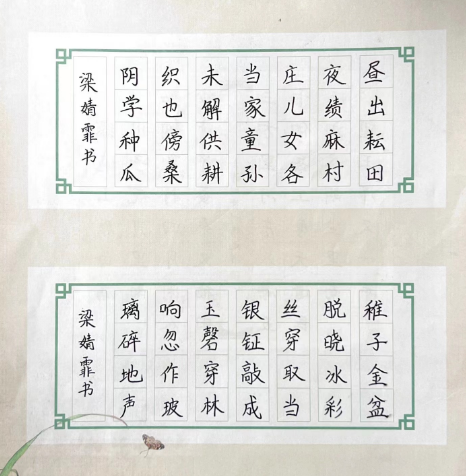 昼出耘田
夜绩麻村
庄儿女各
当家童孙
未解供耕
织也傍桑
阴学种瓜
梁婧霏书
稚子金盆
脱晓冰彩
丝穿取当
银钲敲成
玉磬穿林
响忽作玻
璃碎地声
梁婧霏书